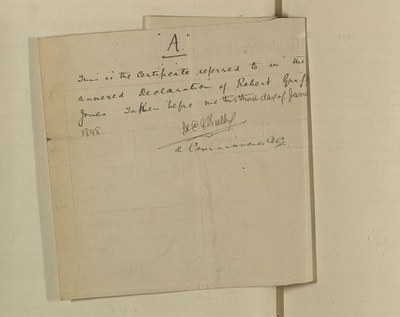 "A."
This is the Certificate referred to in the
annexed Declaration of Robert
Jones Taken before me this third day of
1898
a Commissioner &c